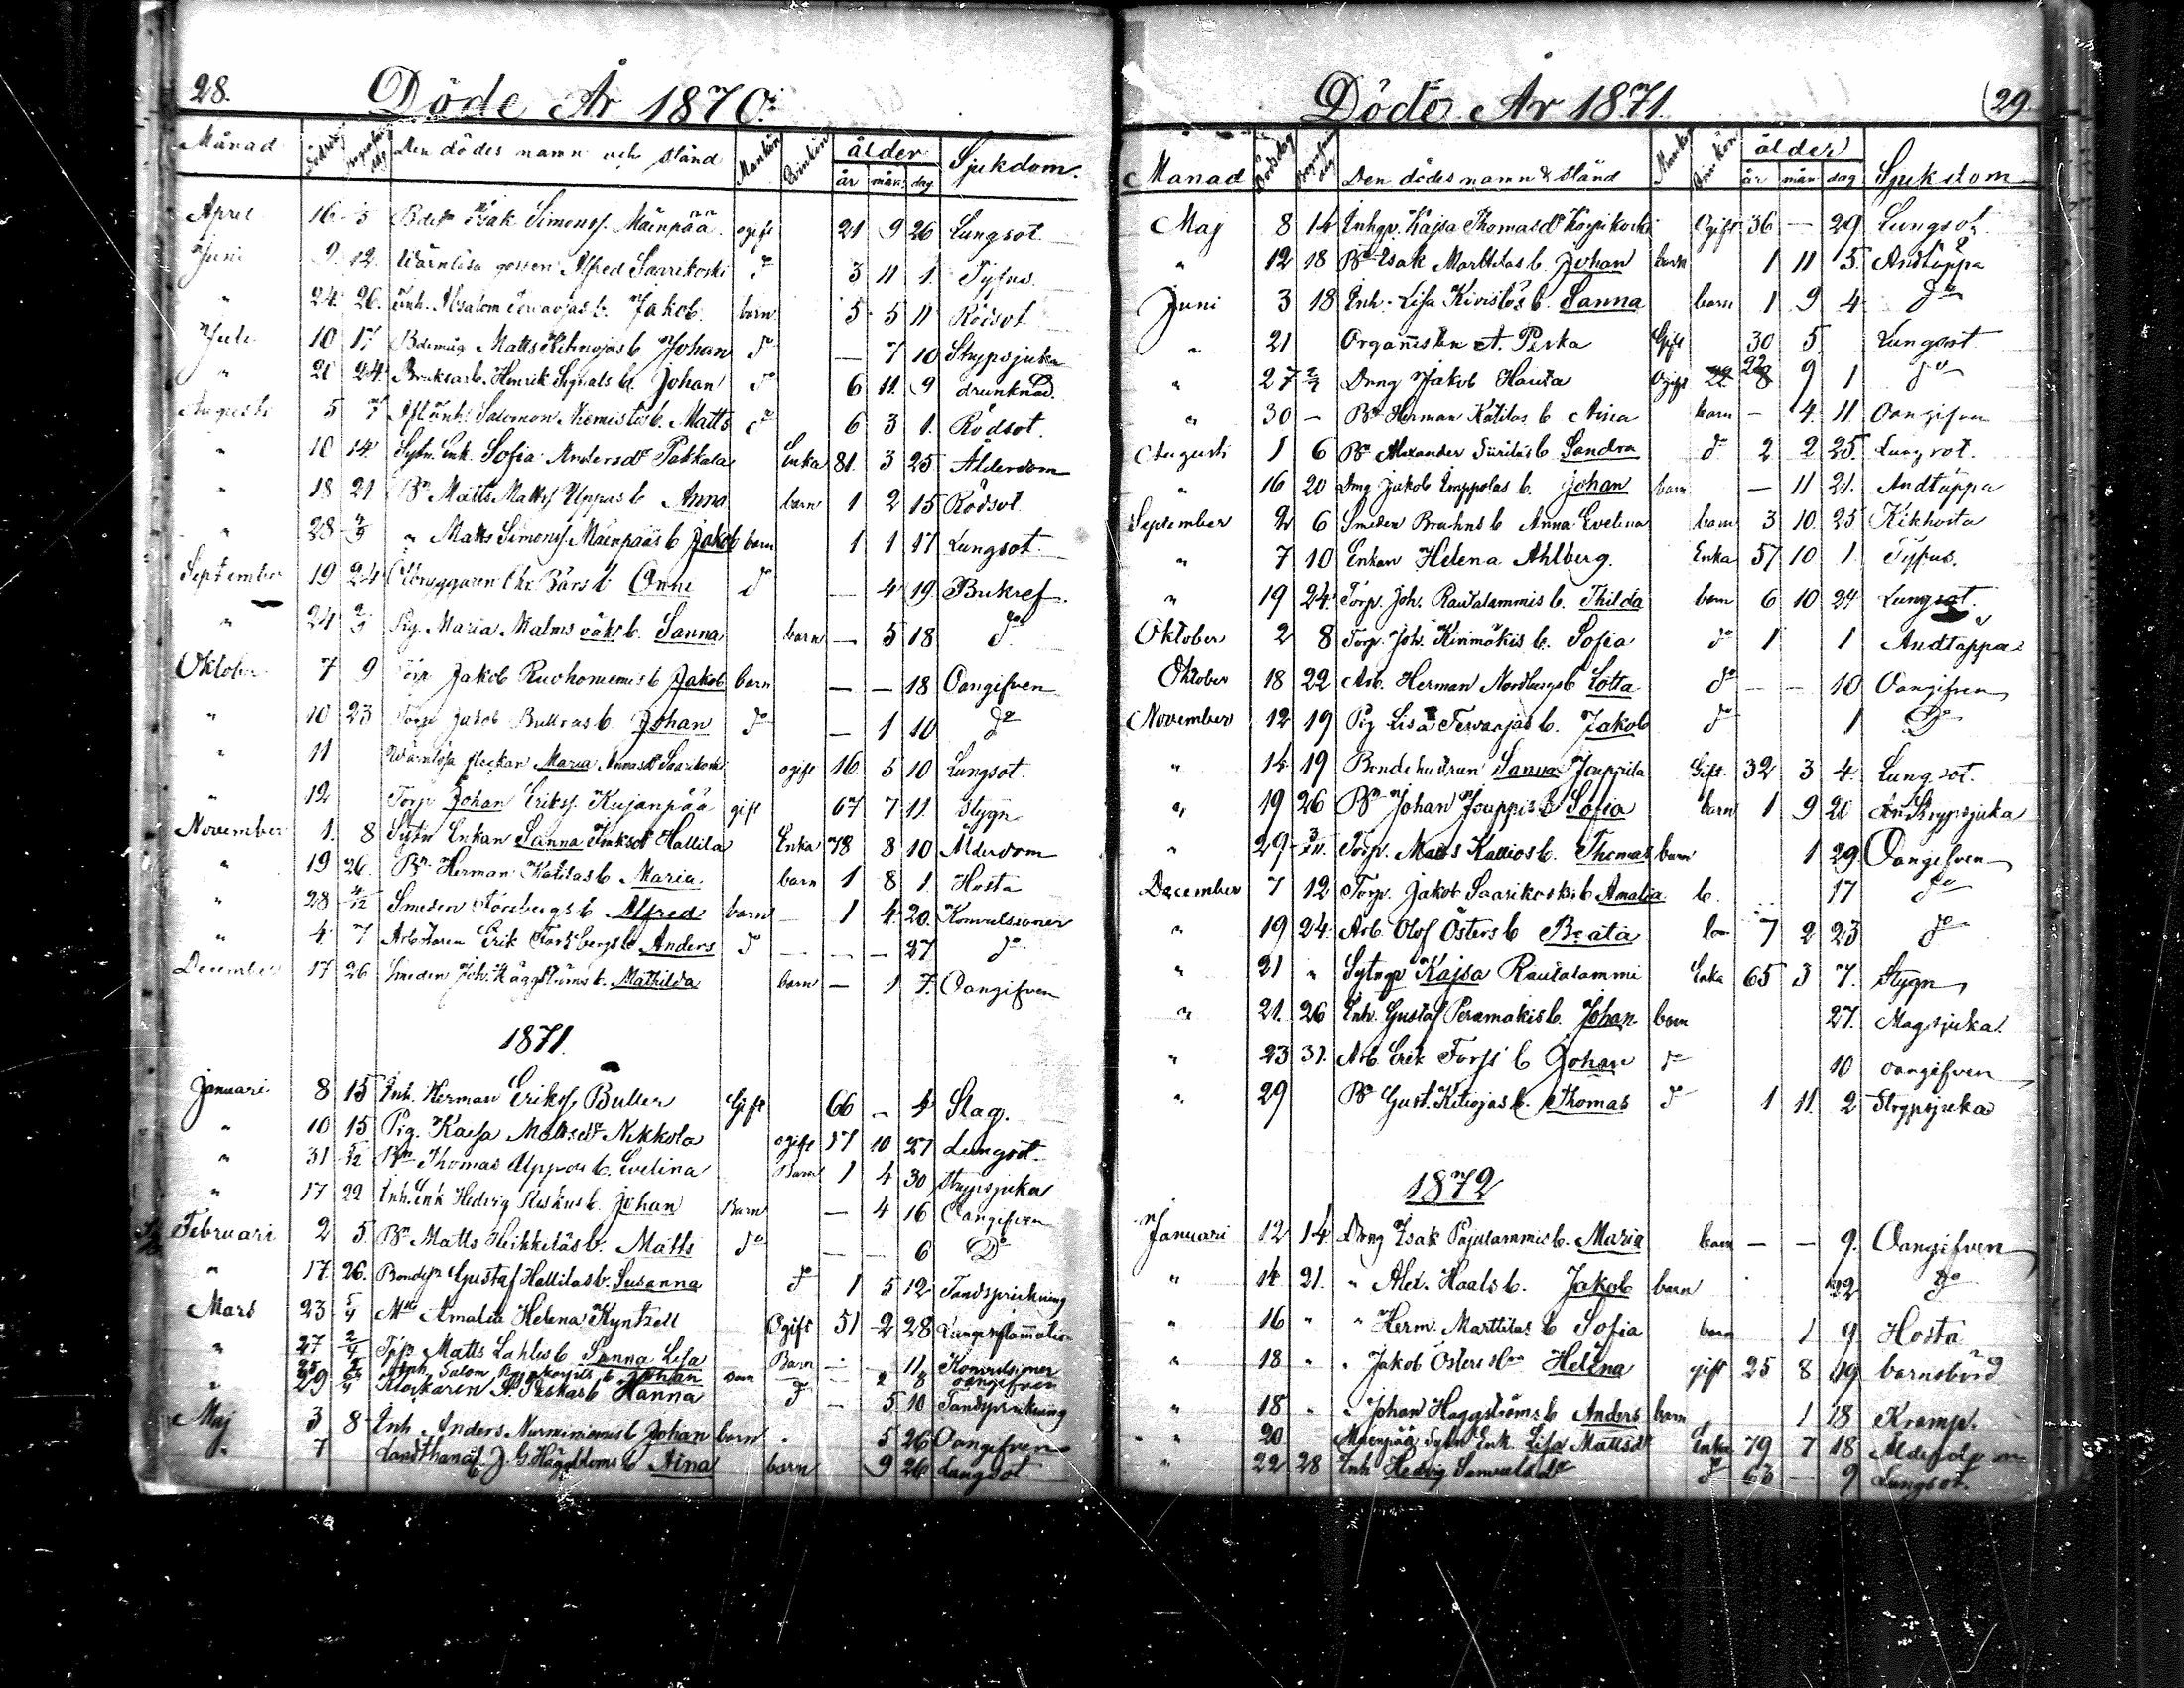 28.
Döde År 1870.
Månad Dödsdag Den dödes namn och stånd Mankön Qvinkön ålder år mån. dag Sjukdom.
April 16 Isak Simonss. Mäenpää ogift 21 9 26 Lungsot
Juni 9 12 Wärnlösa gossen Alfred Saarikoski do 3 11 1 Tyfus
" 24 26 Inh. Absalom b. Jakob barn 5 5 11 Rödsot
Juli 10 17 Matts b. Johan do — 7 10 Strypsjuka
" 20 24 Henrik b. Johan do 6 11 9 drunknad
Augusti 5 7 Salomon b. Matts do 6 3 1 Rödsot.
" 10 14 Sytn. Enk. Sofia Andersdr Pakkala Enka 81 3 25 Ålderdom
" 18 21 Bn Matts Uppas b Anna barn 1 2 15 Rödsot
" 28 " Matts Simonss. Mäenpääs b Jakob barn 1 1 17 Lungsot
September 19 24 b. Onni do — 4 19 Bukref.
" 24 Pig. Maria b. Sanna barn — 5 18 do
Oktober 7 9 Torp Jakob b Jakob barn — — 18 Oangifven
" 10 23 Torp Jakob b Johan do — 1 10 do
" 11 Wärnlösa flickan Maria Saarikoski ogift 16 5 10 Lungsot.
" 12 Torp Johan Erikss. Kujanpää gift 67 7 11 Stygn
November 1 8 Sytn Enkan Sanna Hallila Enka 78 8 10 Ålderdom
" 19 26 Bn. Herman Katilas b Maria barn 1 8 1 Hosta
" 28 Smeden b Alfred barn — 1 4 20 Konvulsioner
" 4 7 Erik b Anders do — — — 27 do
December 17 26 Smeden Joh. Häggströms b. Mathilda barn — 1 7 Oangifven
1871.
Januari 8 15 Inh. Herman Erikss. Buller Gift 66 — 4 Slag.
" 10 15 Pig. Kajsa Mattsdr Nikkola ogift 57 10 27 Lungsot.
" 31 Bn Thomas Uppas b. Evelina Barn 1 4 30 Strypsjuka
" 17 22 Inh. Enk Hedvig b. Johan Barn — 4 16 Oangifven
Februari 2 5 Bn Matts Heikkiläs b. Matts do — — 6 Do
" 17 26 Gustaf Hallilas b. Susanna do 1 5 12 Tandsprickning
Mars 23 5/4 Amalia Helena Kyntzell Ogift 51 2 28 Lunginflamation
" 27 2/4 Matts Lahtis b Sanna Lisa Barn — — 11 Konvulsioner
Inh. Salom b Johan barn oangifven
" 29 Klockaren A. b Hanna do — 5 10 Tandsprickning
Maj 3 8 Inh. Anders b Johan barn 5 26 Oangifven
" 7 J. G. Häggbloms b Aina barn 9 26 Lungsot
29
Döde År 1871.
Månad Dödsdag Den dödes namn & stånd Mankön Qvinkön ålder år mån dag Sjukdom
Maj 8 14 Inhqv. Kajsa Thomasdr Korpikoski Ogift 36 — 29 Lungsot
" 12 18 Bn Esak Marttilas b. Johan barn 1 11 5 Andtäppa
Juni 3 18 Inh. Lisa Kivistös b. Sanna barn 1 9 4 do
" 21 Organisten A. Peska Gift 30 5 Lungsot
" 27 Dräng Jakob Hauta Ogift 22 9 1 do
" 30 — Bn Herman Katilas b Aina barn — 4 11 Oangifven
Augusti 1 6 Bn Alexander b Sandra do 2 2 25 Lungsot.
" 16 20 Dräng Jakob b. Johan barn — 11 21 Andtäppa
September 2 6 Smeden Bruhns b Anna Evelina barn 3 10 25 Kikhosta
" 7 10 Enkan Helena Ahlberg. Enka 57 10 1 Tyfus.
" 19 24 Torp. Joh. Rautalammis b. Thilda barn 6 10 24 Lungsot.
Oktober 2 8 Torp. Joh. Kinimäkis b. Sofia do 1 1 Andtäppa
Oktober 18 22 Arb. Herman Nordbergs b Lotta do — — 10 Oangifven
November 12 19 Pig Lisa b. Jakob do 1 Do
" 14 19 Bondehustrun Sanna Jouppila Gift 32 3 4 Lungsot.
" 19 26 Bn Johan Jouppis b Sofia barn 1 9 20 Strypsjuka
" 29 Torp. Matts Kallios b. Thomas barn 1 29 Oangifven
December 7 12 Torp. Jakob Saarikoskis b Amalia b. 17 do
" 19 24 Arb. Olof Östers b Beata 7 2 23 do
" 21 " Kajsa Rautalammi Enka 65 3 7 Stygn
" 21 26 Inh. Gustaf Perämäkis b. Johan barn 27 Magsjuka.
" 23 31 Arb Erik Forss b Johan do 10 oangifven
" 29 Bn Gust. b. Thomas do 1 11 2 Strypsjuka
1872
Januari 12 14 Dräng Isak Pajulammis b. Maria barn — — 9 Oangifven
" 14 21 " Alex. b. Jakob barn 22 do
" 16 " " Herm. Marttilas b Sofia barn 1 9 Hosta
" 18 " " Jakob Östers Helena gift 25 8 19 barnsbörd
" 18 " " Johan Häggströms b Anders barn 1 18 Kramp.
" 20 Mäenpää Sytn Enk. Lisa Mattsdr Enka 79 7 18 Ålderdom
" 22 28 Inh Hedvig Samuelsdr do 63 — 9 Lungsot.